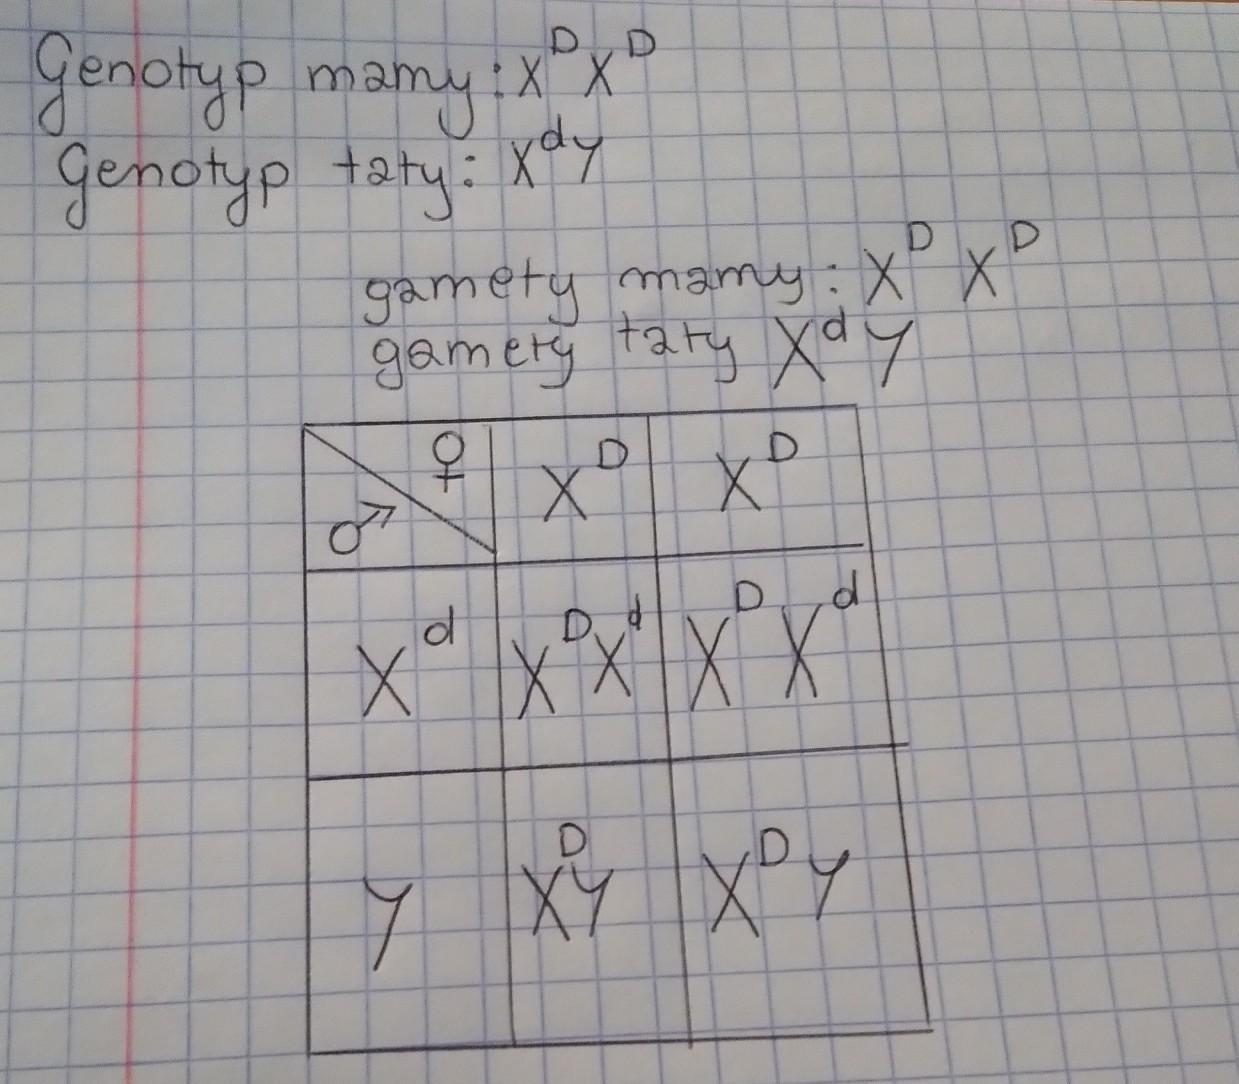 Genotyp mamy: X^D X^D
Genotyp taty: X^d Y
gamety mamy: X^D X^D
gamety taty X^d Y
♀ X^D X^D
♂
X^d X^D X^d X^D X^d
Y X^D Y X^D Y